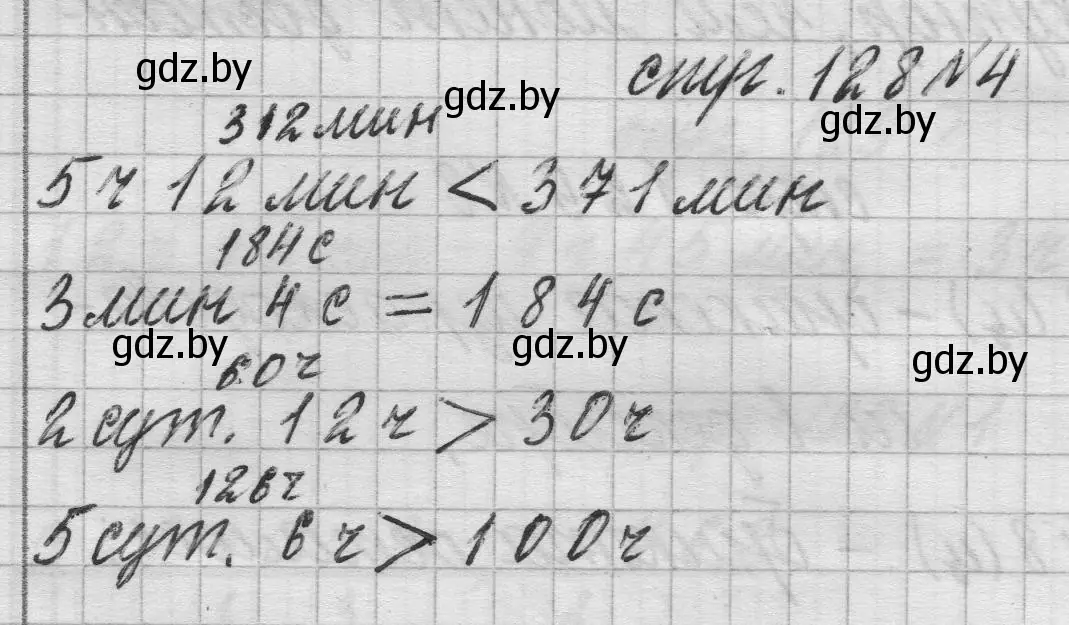 стр. 128 №4
312 мин
5 ч 12 мин < 371 мин
184 с
3 мин 4 с = 184 с
60 ч
2 сут. 12 ч > 30 ч
126 ч
5 сут. 6 ч > 100 ч
gdz.by
gdz.by
gdz.by
gdz.by
gdz.by
gdz.by